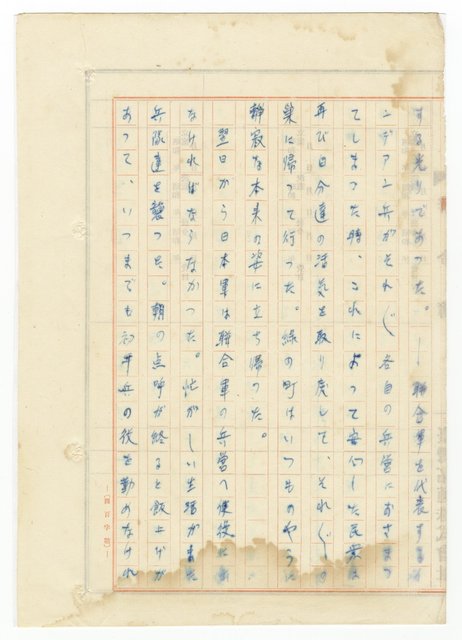 する光りであった。― 聯合軍を代表する
ンデアン兵がそれ〲各自の兵営におさまつ
てしまつた時、これによつて安心した民衆は
再び自分達の活気を取り戻して、それ〲の
巣に帰って行った。緑の町はいつものやうに
静寂な本来の姿に立ち帰つた。
翌日から日本軍は聯合軍の兵営へ使役に
なければならなかつた。忙がしい生活がまた
兵隊達を襲つた。朝の点呼が終ると飯上げが
あつて、いつまでも初年兵の役を勤めなけれ